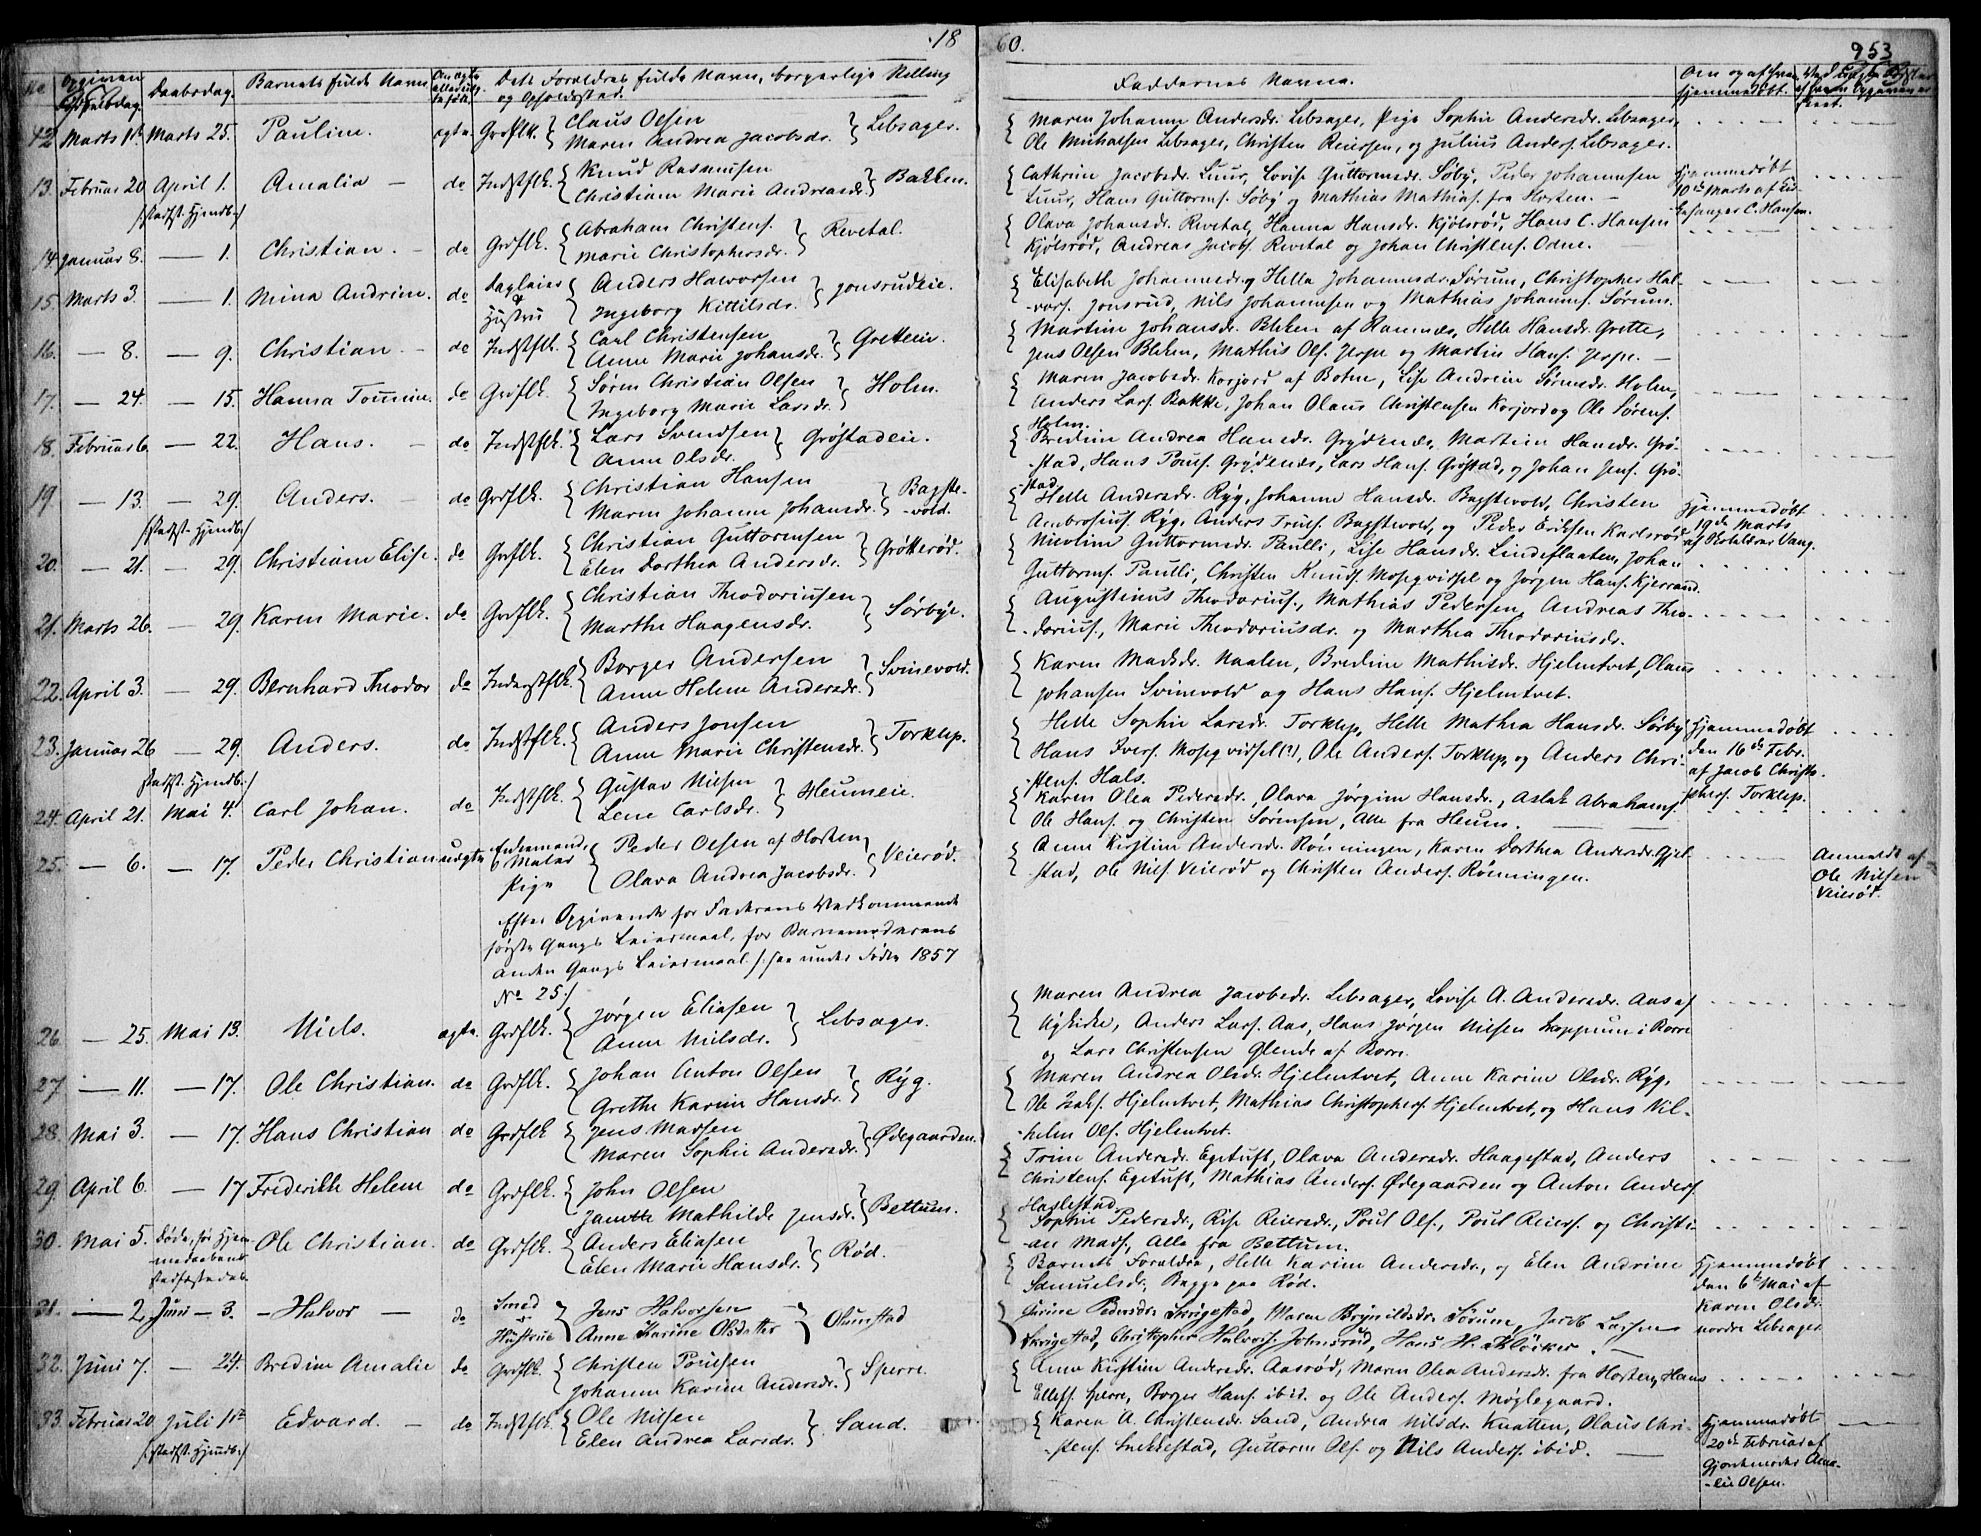 18 60. 953
No Opgiven Fødselsdag. Daabsdag. Barnets fulde Navn Om ægte eller uægte født. Dets Forældres fulde Navn, borgerlige Stilling og Opholdssted. Faddernes Navne. Om og af hvem hjemmedøbt.
12 Marts 1ste Marts 25. Pauline. ægte Grdflk. Claus Olsen
Maren Andrea Jacobsdr. Lebsager.
Maren Johanne Andersdr. Lebsager, Pige Sophie Andersdr. Lebsager,
Ole Michaelsen Lebsager, Christen Reiersen, og Julius Anders. Lebsager.
13. Februar 20 April 1. Amalia do Indstflk. Knud Rasmusen
/:stadf. Hjemdb:/ Christiane Marie Andreasdr. Bakken.
Cathrine Jacobsdr. Luur, Lovise Guttormsdr. Søby, Peder Johannesen
Luur, Hans Guttorms. Søby og Mathias Mathias. fra Horten.
Hjemmedøbt
10de Marts af
C. Hansen.
14. Januar 8. — 1. Christian. do Grdflk. Abraham Christens.
Marie Christophersdr. Revetal.
Olava Johansdr. Revetal, Hanna Hansdr. Kjølsrød, Hans C. Hansen
Kjølsrød, Andreas Jacobs. Revetal og Johan Christens.
15. Marts 3. — 1. Mina Andrine. do Dagleier & Hustru Anders Haworsen
Ingeborg Kittilsdr. Jonsrudeie.
Elisabeth Johannesdr. og Helle Johannesdr. Sørum, Christopher Hal-
-vors. Jonsrud, Nils Johannesen og Mathias Johannes. Sørum.
16. — 8. — 9. Christian. do Indstflk. Carl Christensen
Anne Marie Johansdr. Gretteeie.
Martine Johansdr. Bleken af Ramnæs, Helle Hansdr. Grette,
Jens Olsen Bleken, Mathis Ols. Jerpe og Martin Hans. Jerpe.
17. — 24. — 15. Hanna Tomine. do Grdflk. Søren Christian Olsen
Ingeborg Marie Larsdr. Holm.
Maren Jacobsdr. Korjord af Botne, Lise Andrine Sørensdr. Holm,
Anders Lars. Bakke, Johan Olaus Christensen Korjord og Ole Sørens.
Holm.
18. Februar 6. — 22. Hans. do Indstflk. Lars Svendsen
Anne Olsdr. Grøstadeie.
Bredine Andrea Hansdr. Grydenæs, Martine Hansdr. Grø-
-stad, Hans Pouls. Grydenæs, Lars Hans. Grøstad, og Johan Jens. Grø-
-stad.
19. — 13. — 29. Anders. do Grdflk. Christian Hansen
/:stadf. Hjemdb:/ Maren Johanne Johansdr. Bagste-
-vold.
Helle Andersdr. Ryg, Johanne Hansdr. Bagstevold, Christen
Ambrosius. Ryg, Anders Truls. Bagstevold, og Peder Eriksen Karlsrød
Hjemmedøbt
19de Marts
af Vang.
20. — 21. — 29. Christiane Elise. do Grdflk. Christian Guttormsen
Elen Dorthea Andersdr. Grøtterød.
Nicoline Guttormsdr. Paulli, Lise Hansdr. Lindeflaaten, Johan
Guttorms. Paulli, Christen Knuds. Moseqvidsel og Jørgen Hans. Kjerrand.
21. Marts 26. — 29. Karen Marie. do Grdflk. Christian Theodoriusen
Marthe Haagensdr. Sørbye.
Augustinus Theodorius., Mathias Pedersen, Andreas Theo-
-dorius., Marie Theodoriusdr. og Marthea Theodoriusdr.
22. April 3. — 29. Bernhard Theodor do Inderstflk. Borger Andersen
Anne Helene Andersdr. Svinevold.
Karen Madsdr. Naalen, Bredine Mathisdr. Hjelmtvet, Olaus
Johansen Svinevold og Hans Hans. Hjelmtvet.
23. Januar 26 — 29. Anders. do Indstflk. Anders Jonsen
/:stadf. Hjemdb:/ Anne Marie Christensdr. Torklep.
Helle Sophie Larsdr. Torklep, Helle Mathea Hansdr. Sørby
Hans Ivers. Moseqvidsel(?), Ole Anders. Torklep, og Anders Chri-
-stens. Hals.
Hjemmedøbt
den 16de Febr.
af Jacob Christo-
phers. Torklep.
24. April 21. Mai 4. Carl Johan. do Indstflk. Gustav Nilsen
Lene Carlsdr. Heumeie.
Karen Olea Pedersdr., Olava Jørgine Hansdr., Aslak Abrahams.
Ole Hans. og Christen Sørensen, Alle fra Heum.
25. — 6. — 17. Peder Christian uægte Matros
Pige Peder Olsen af Horten
Olava Andrea Jacobsdr. Veierød.
Anne Kirstine Andersdr. Rønningen, Karen Dorthea Andersdr. Gjel-
stad, Ole Nils. Veierød og Christen Anders. Rønningen.
Anmeldt af
Ole Nilsen
Veierød.
Efter Opgivende for Faderens Vedkommende
første Gangs Leiermaal, for Barnemoderens
anden Gangs Leiermaal /: see under Føden 1857
No 25:/
26. — 25. Mai 13. Niels. ægte. Grdflk. Jørgen Eliasen
Anne Nielsdr. Lebsager.
Maren Andrea Jacobsdr. Lebsager, Lovise A. Andersdr. Aas af
Nykirke, Anders Lars. Aas, Hans Jørgen Nielsen i Borre
og Lars Christensen Glende af Borre.
27. — 11. — 17. Ole Christian. do Grdflk. Johan Anton Olsen
Grethe Karine Hansdr. Ryg.
Maren Andrea Olsdr. Hjelmtvet, Anne Karine Olsdr. Ryg,
Ole Isaks. Hjelmtvet, Mathias Christophers. Hjelmtvet, og Hans Vil-
-helm Ols. Hjelmtvet.
28. Mai 3. — 17. Hans Christian do Grdflk Jens Madsen
Maren Sophie Andersdr. Ødegaarden.
Trine Andersdr. Egetuft, Olava Andersdr. Haagestad, Anders
Christens. Egetuft, Mathias Anders. Ødegaarden og Anton Anders.
Haslestad.
29. April 6. — 17 Frederikke Helene do Grdflk. John Olsen
Janette Mathilde Jensdr. Bettum.
Sophie Pedersdr., Rise Reiersdr., Poul Ols., Poul Reiers. og Christi-
-an Mads., Alle fra Bettum.
30. Mai 5. Døde, før Hjem-
-medaaben
stadfæstedes. Ole Christian. do Grdflk. Anders Eliasen
Elen Marie Hansdr. Rød.
Barnets Forældre, Helle Karine Andersdr., og Elen Andrine
Samuelsdr. Bagge paa Rød.
Hjemmedøbt
den 6te Mai af
Karen Olsdr.
nordre Lebsager
31. — 2. Juni — 3. Halvor do Smed
Hustrue Jens Halvorsen
Anne Karine Olsdatter Olumstad
Sirine Pedersdr. Skrigestad, Maren Brynildsdr. Sørum, Jacob Larsen
Skrigestad, Christopher Halvors. Johnsrud, Hans H. Kløcker.
32. Juni 7. — 24. Bredine Amalie do Grdflk. Christen Poulsen
Johanne Karine Andersdr. Sperre.
Anne Kirstine Andersdr. Aasrød, Maren Olea Andersdr. fra Horten, Hans
Ellefs. Sperre, Borger Hans. ibid. og Ole Anders. Møglegaard.
33. Februar 20 Juli 1ste Edvard. do Indstflk. Ole Nilsen
/:stadf. Hjemdb:/ Elen Andrea Larsdr. Sand.
Karen A. Christensdr. Sand, Andrea Nilsdr. Knatten, Olaus Chri-
-stens. Snekkestad, Guttorm Ols. og Nils Anders. ibid.
Hjemmedøbt
20de Februar af
Gjordemoder Ama-
-lie Olsen.